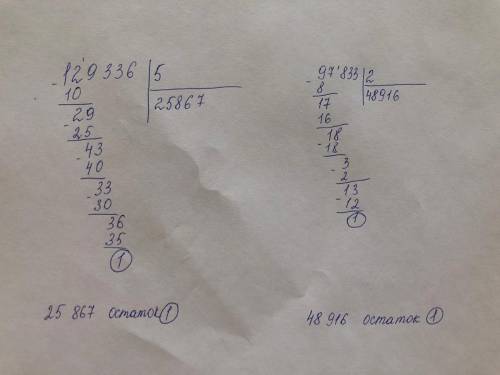 129336 5
- 10 25867
29
- 25
43
- 40
33
- 30
36
35
1
25 867 остаток 1
97'833 2
- 8 48916
17
16
18
- 18
3
- 2
13
- 12
1
48 916 остаток 1